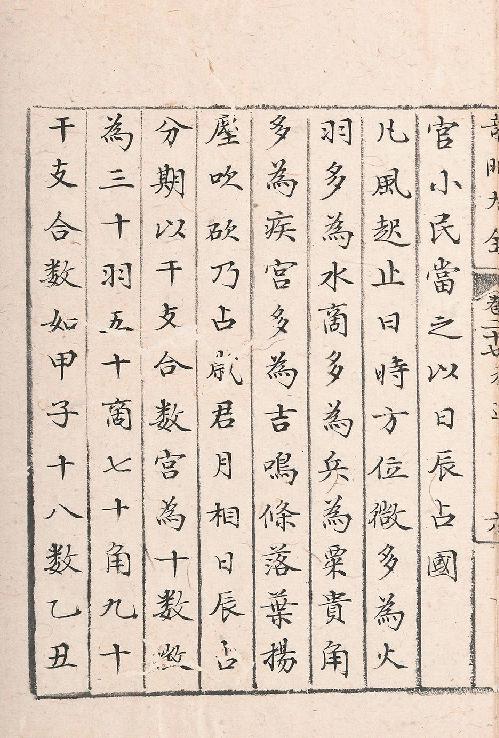 官小民當之以日辰占國
凡風起止日時方位徴多為火
羽多為水啇多為兵為粟貴角
多為疾宮多為吉鳴條落葉揚
塵吹砍乃占歲君月相日辰占
分期以干支合数宮為十数徴
為三十羽五十啇七十角九十
干支合数如甲子十八数乙丑